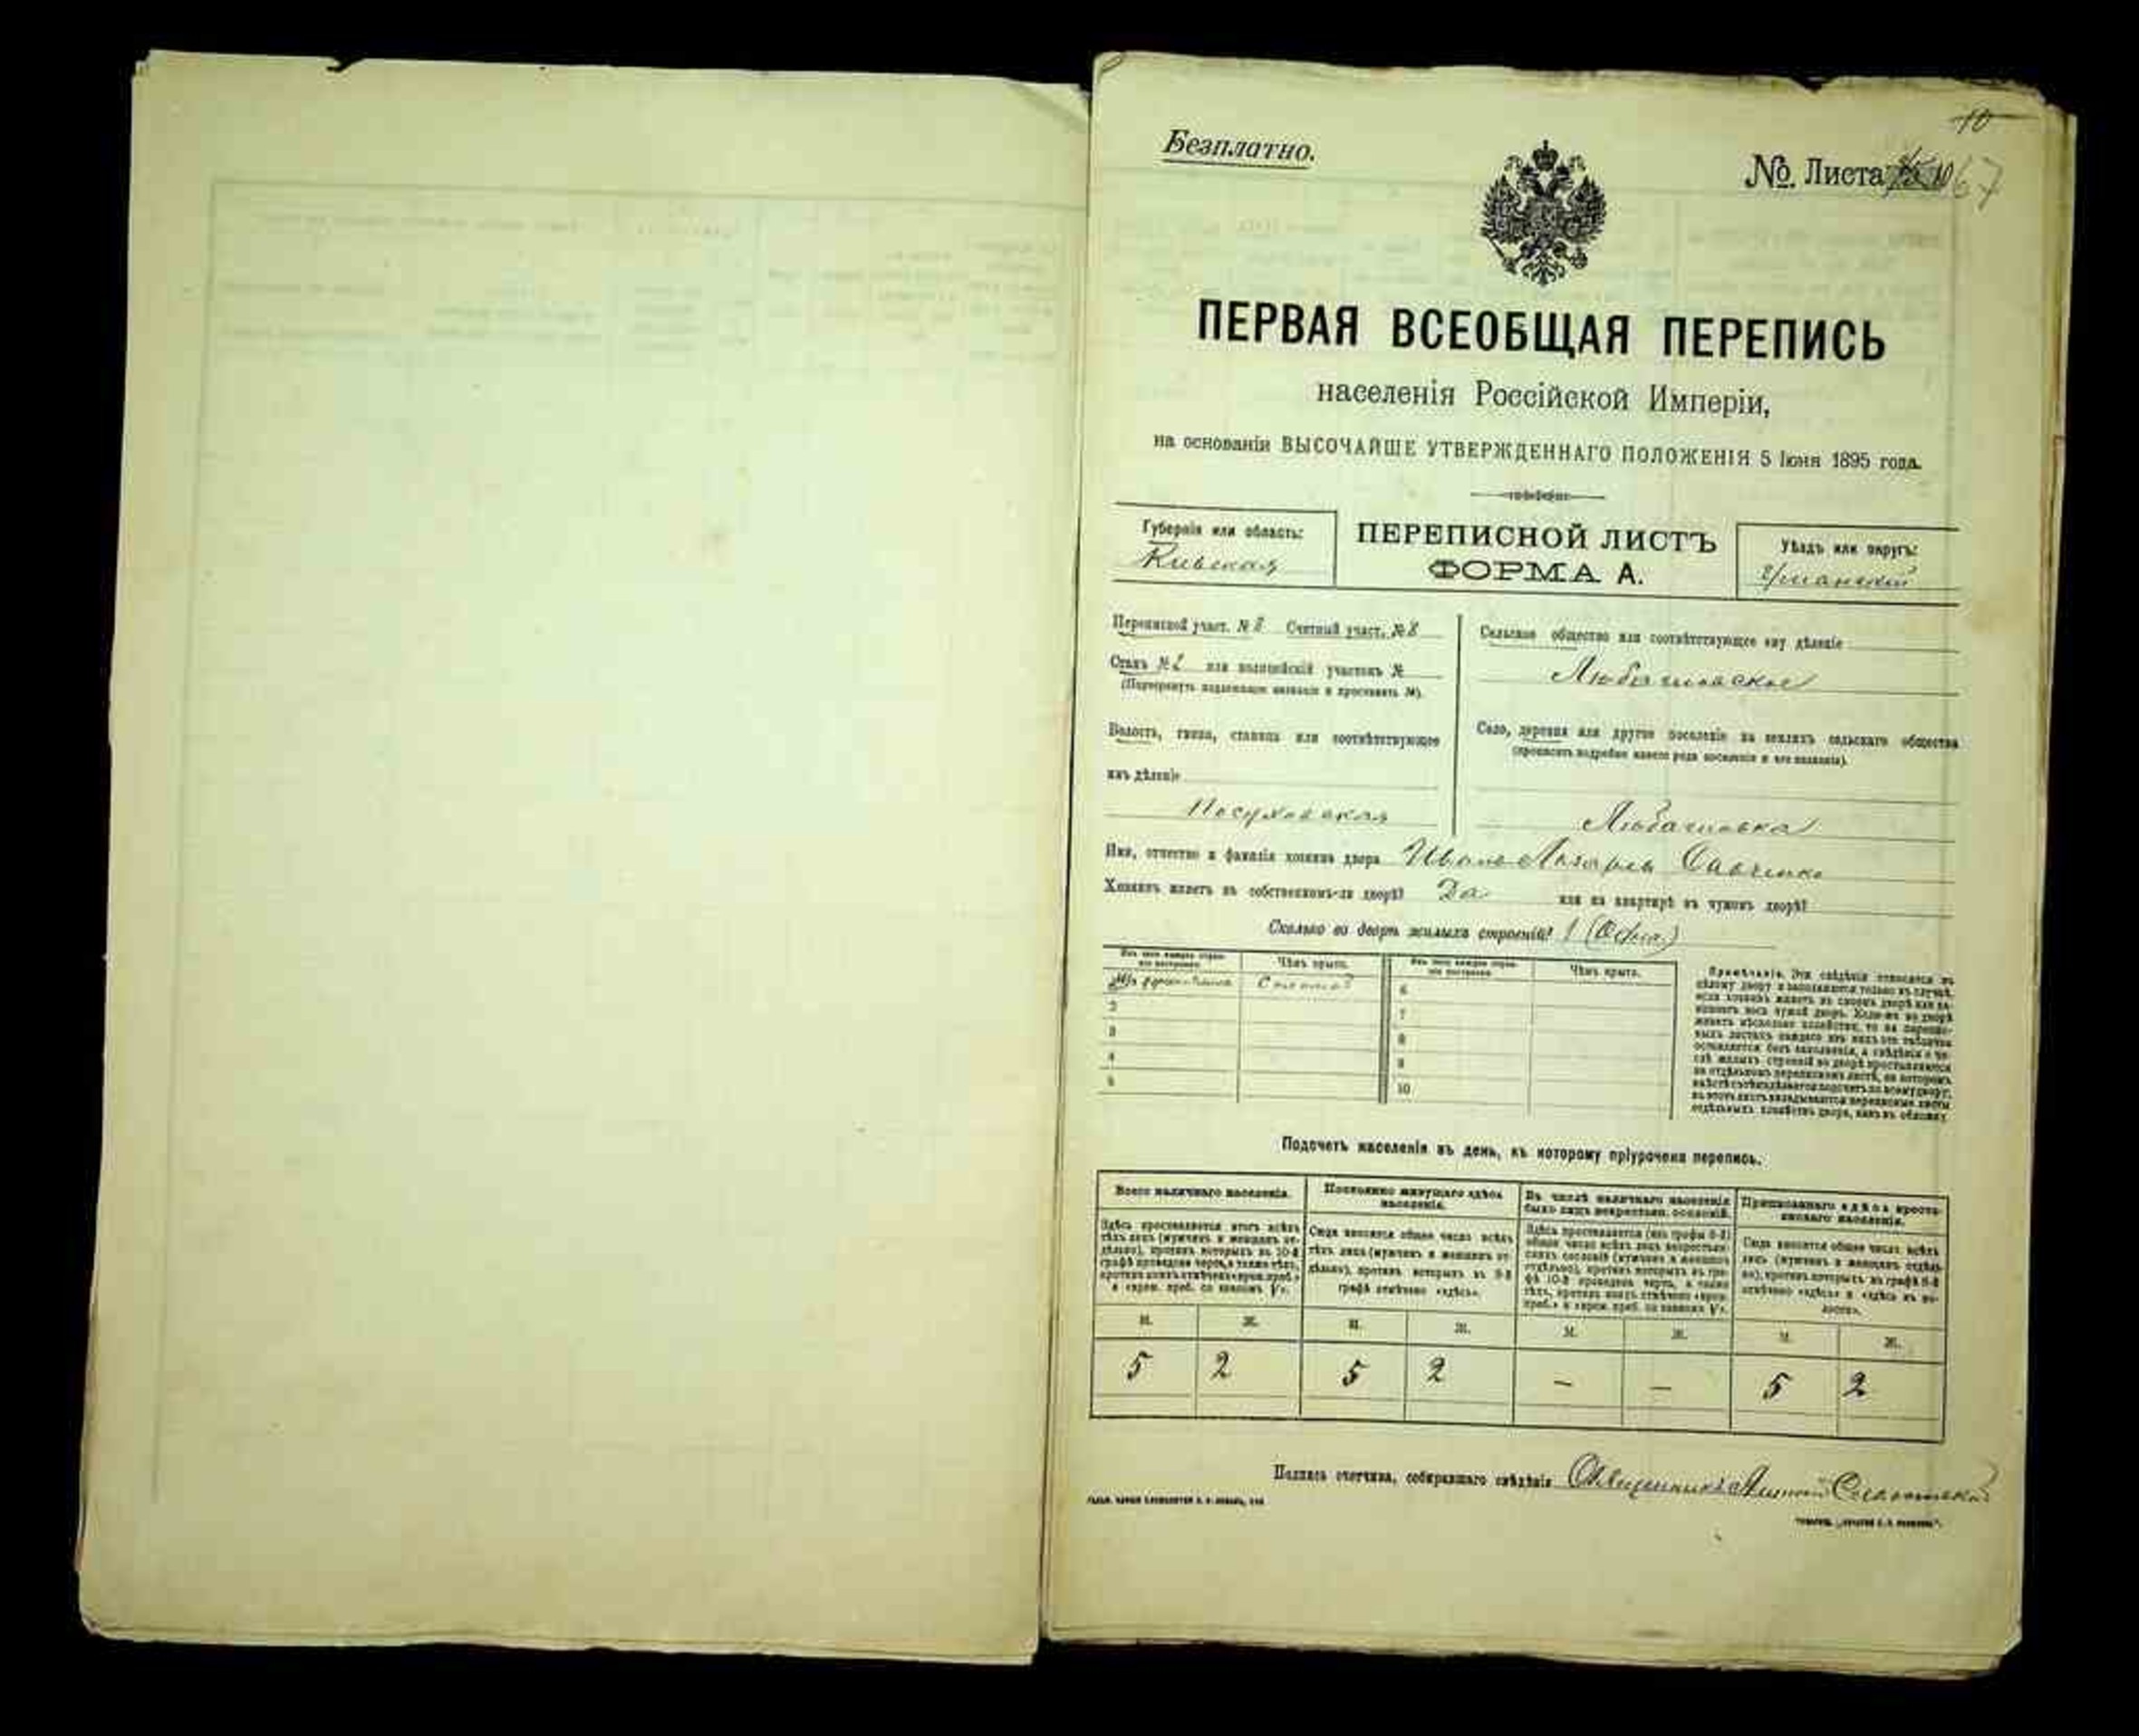 10
Безплатно.
№. Листа 10 67
ПЕРВАЯ ВСЕОБЩАЯ ПЕРЕПИСЬ
населенія Россійской Имперіи,
на основаніи ВЫСОЧАЙШЕ УТВЕРЖДЕННАГО ПОЛОЖЕНІЯ 5 Іюня 1895 года.
Губернія или область:
Кіевская
ПЕРЕПИСНОЙ ЛИСТЪ
ФОРМА А.
Уѣздъ или округъ:
Уманскій
Переписной участ. № 8 Счетный участ. № 8
Станъ № 2 или полицейскій участокъ №
(Подчеркнуть надлежащее названіе и проставить №).
Волость, гмина, станица или соотвѣтствующее
имъ дѣленіе
Посуховская
Сельское общество или соотвѣтствующее ему дѣленіе
Село, деревня или другое поселеніе на земляхъ сельскаго общества
(прописать подробно какого рода поселеніе и его названіе).
Имя, отчество и фамилія хозяина двора Иванъ Лазаревъ Савченко
Хозяинъ живетъ въ собственномъ-ли дворѣ? Да или на квартирѣ въ чужомъ дворѣ?
Сколько во дворѣ жилыхъ строеній? 1 (Одна)
Изъ чего каждое строеніе построено.
Чѣмъ крыто.
Изъ чего каждое строеніе построено.
Чѣмъ крыто.
Соломой
6
2
7
3
8
4
9
5
10
Примѣчаніе. Эти свѣдѣнія относятся къ
цѣлому двору и заполняются только въ случаѣ,
если хозяинъ живетъ въ своемъ дворѣ или за-
нимаетъ весь чужой дворъ. Если-же во дворѣ
живетъ нѣсколько хозяйствъ, то на перепис-
ныхъ листахъ каждаго изъ нихъ эта табличка
оставляется безъ заполненія, а свѣдѣнія о чи-
слѣ жилыхъ строеній во дворѣ проставляются
на отдѣльномъ переписномъ листѣ, на которомъ
въ этотъ листъ вкладываются переписные листы
отдѣльныхъ хозяйствъ двора, какъ въ обложку.
Подсчетъ населенія въ день, къ которому пріурочена перепись.
Всего наличнаго населенія.
Здѣсь проставляется итогъ всѣхъ
тѣхъ лицъ (мужчинъ и женщинъ от-
дѣльно), противъ которыхъ въ 10-й
графѣ проведена черта, а также тѣхъ,
противъ коихъ отмѣчено «врем. преб.»
и «врем. преб. со знакомъ V».
Постоянно живущаго здѣсь
населенія.
Сюда вносится общее число всѣхъ
тѣхъ лицъ (мужчинъ и женщинъ от-
дѣльно), противъ которыхъ въ 9-й
графѣ отмѣчено «здѣсь».
Въ числѣ наличнаго населенія
было лицъ некрестьян. сословій.
Здѣсь проставляется (изъ графы 6-й)
общее число всѣхъ лицъ некрестьян-
скихъ сословій (мужчинъ и женщинъ
отдѣльно), противъ которыхъ въ гра-
фѣ 10-й проведена черта, а также
тѣхъ, противъ коихъ отмѣчено «врем.
преб.» и «врем. преб. со знакомъ V».
Приписаннаго здѣсь кресть-
янскаго населенія.
Сюда вносится общее число всѣхъ
лицъ (мужчинъ и женщинъ отдѣль-
но), противъ которыхъ въ графѣ 8-й
отмѣчено «здѣсь» и «здѣсь въ во-
лости».
М. Ж. М. Ж. М. Ж. М. Ж.
5 2 5 2 — — 5 2
Подпись счетчика, собиравшаго свѣдѣнія Священникъ